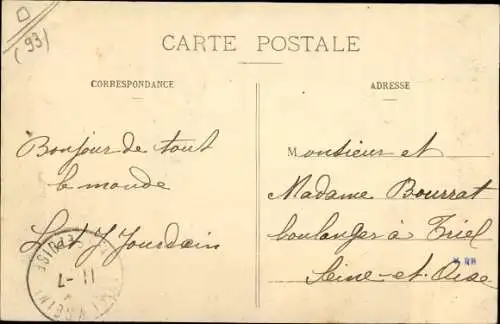 (93)
CARTE POSTALE
CORRESPONDANCE
ADRESSE
Bonjour de tout
le monde
Jourdain
Monsieur et
Madame Bourrat
boulanger à Triel
Seine-et-Oise
11-7